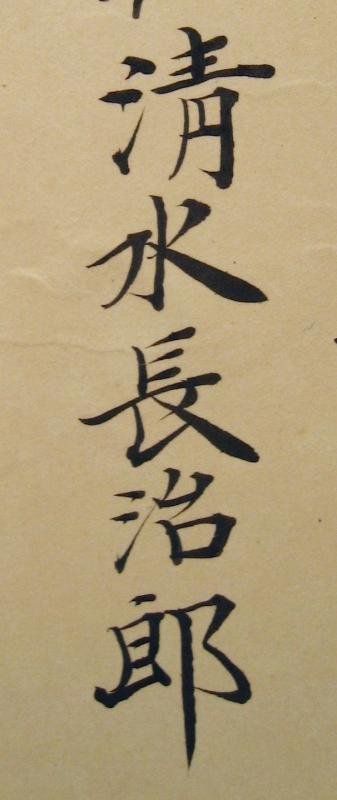 清水長治郎